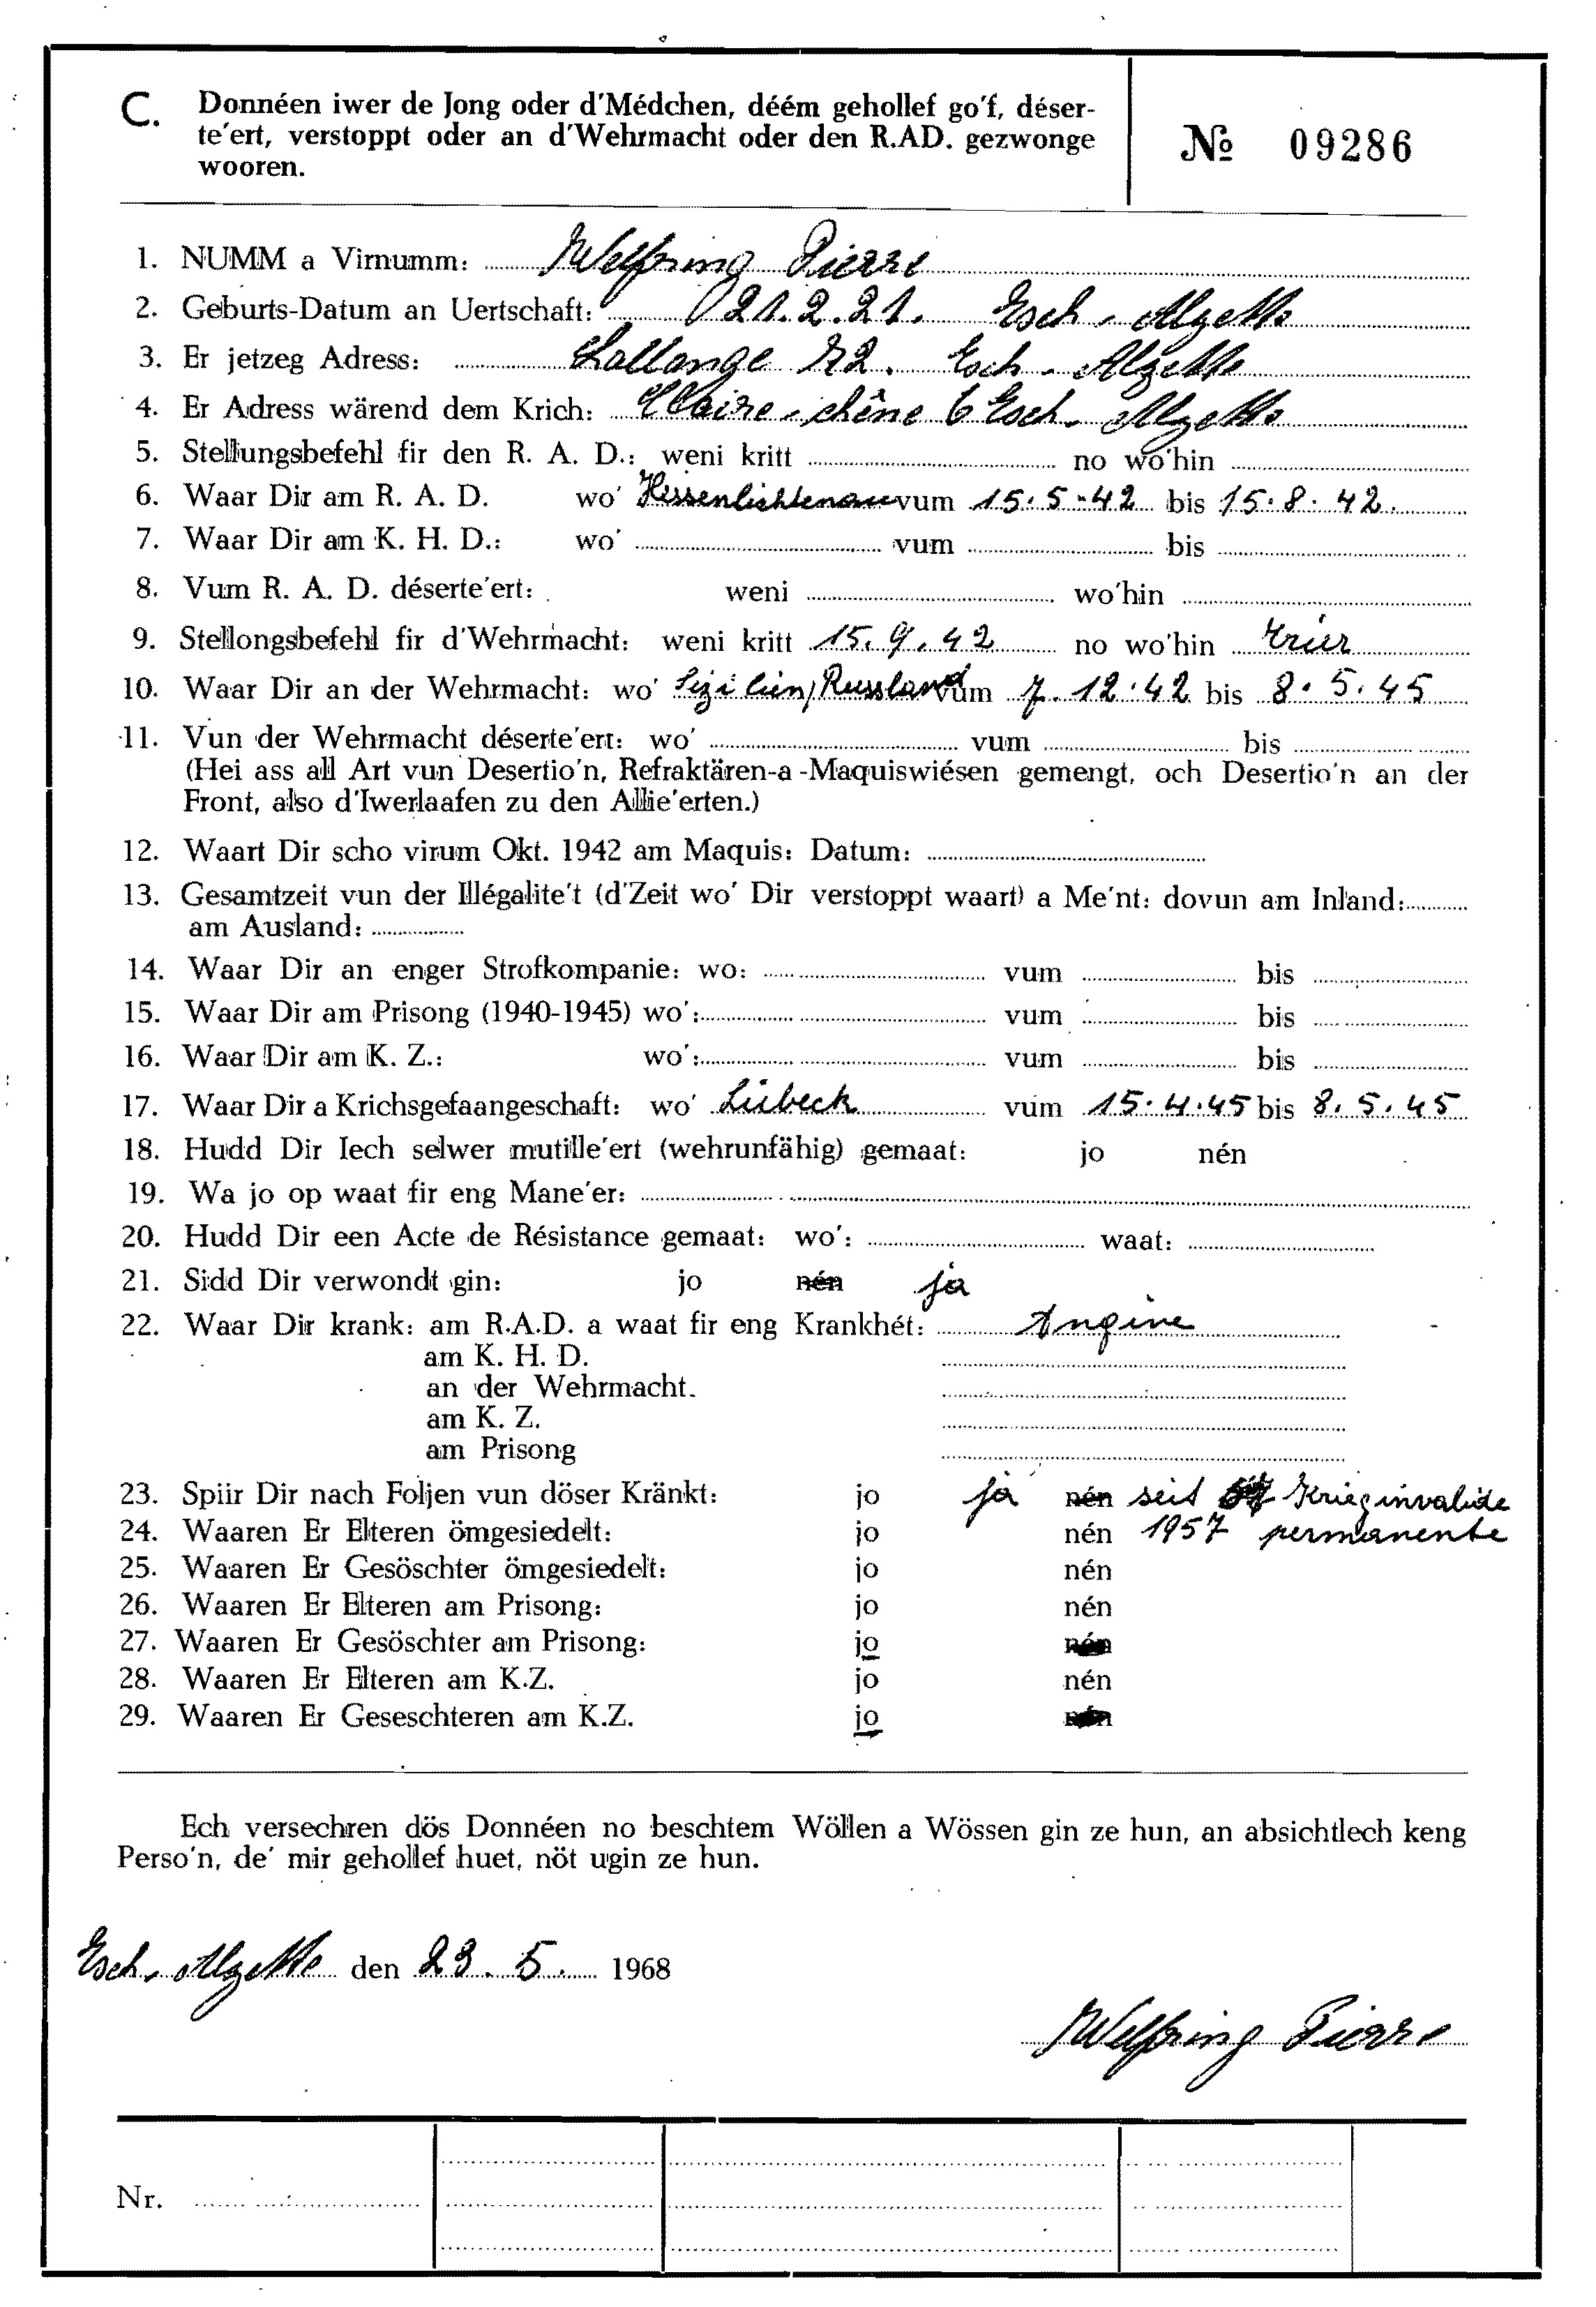 C. Donnéen iwer de Jong oder d'Médchen, déém gehollef go'f, déser-
te'ert, verstoppt oder an d'Wehrmacht oder den R.AD. gezwonge
wooren.
№ 09286
1. NUMM a Virnumm: Welfring Pierre
2. Geburts-Datum an Uertschaft: 21.2.21. Esch-Alzette
3. Er jetzeg Adress: Lallange 72. Esch-Alzette
4. Er Adress wärend dem Krich: Claire-chêne 6 Esch-Alzette
5. Stellungsbefehl fir den R. A. D.: weni kritt no wo'hin
6. Waar Dir am R. A. D. wo' Hissenlichtenau vum 15.5.42 bis 15.8.42.
7. Waar Dir am K. H. D.: wo' vum bis
8. Vum R. A. D. déserte'ert: weni wo'hin
9. Stellongsbefehl fir d'Wehrmacht: weni kritt 15.9.42 no wo'hin Trier
10. Waar Dir an der Wehrmacht: wo' Sizilien/Russland vum 7.12.42 bis 8.5.45
11. Vun der Wehrmacht déserte'ert: wo' vum bis
(Hei ass all Art vun Desertio'n, Refraktären-a-Maquiswiésen gemengt, och Desertio'n an der
Front, also d'Iwerlaafen zu den Allie'erten.)
12. Waart Dir scho virum Okt. 1942 am Maquis: Datum:
13. Gesamtzeit vun der Illégalite't (d'Zeit wo' Dir verstoppt waart) a Me'nt: dovun am Inland:
am Ausland:
14. Waar Dir an enger Strofkompanie: wo: vum bis
15. Waar Dir am Prisong (1940-1945) wo': vum bis
16. Waar Dir am K. Z.: wo': vum bis
17. Waar Dir a Krichsgefaangeschaft: wo' Lübeck vum 15.4.45 bis 8.5.45
18. Hudd Dir Iech selwer mutille'ert (wehrunfähig) gemaat: jo nén
19. Wa jo op waat fir eng Mane'er:
20. Hudd Dir een Acte de Résistance gemaat: wo': waat:
21. Sidd Dir verwondt gin: jo nén ja
22. Waar Dir krank: am R.A.D. a waat fir eng Krankhét: Angine
am K. H. D.
an der Wehrmacht.
am K. Z.
am Prisong
23. Spiir Dir nach Foljen vun döser Kränkt: jo ja nén seit Krieginvalide
24. Waaren Er Elteren ömgesiedelt: jo nén 1957 permanente
25. Waaren Er Gesöschter ömgesiedelt: jo nén
26. Waaren Er Elteren am Prisong: jo nén
27. Waaren Er Gesöschter am Prisong: jo nén
28. Waaren Er Elteren am K.Z. jo nén
29. Waaren Er Geseschteren am K.Z. jo nén
Ech versechren dös Donnéen no beschtem Wöllen a Wössen gin ze hun, an absichtlech keng
Perso'n, de' mir gehollef huet, nöt ugin ze hun.
Esch-Alzette den 23.5. 1968
Welfring Pierre
Nr.